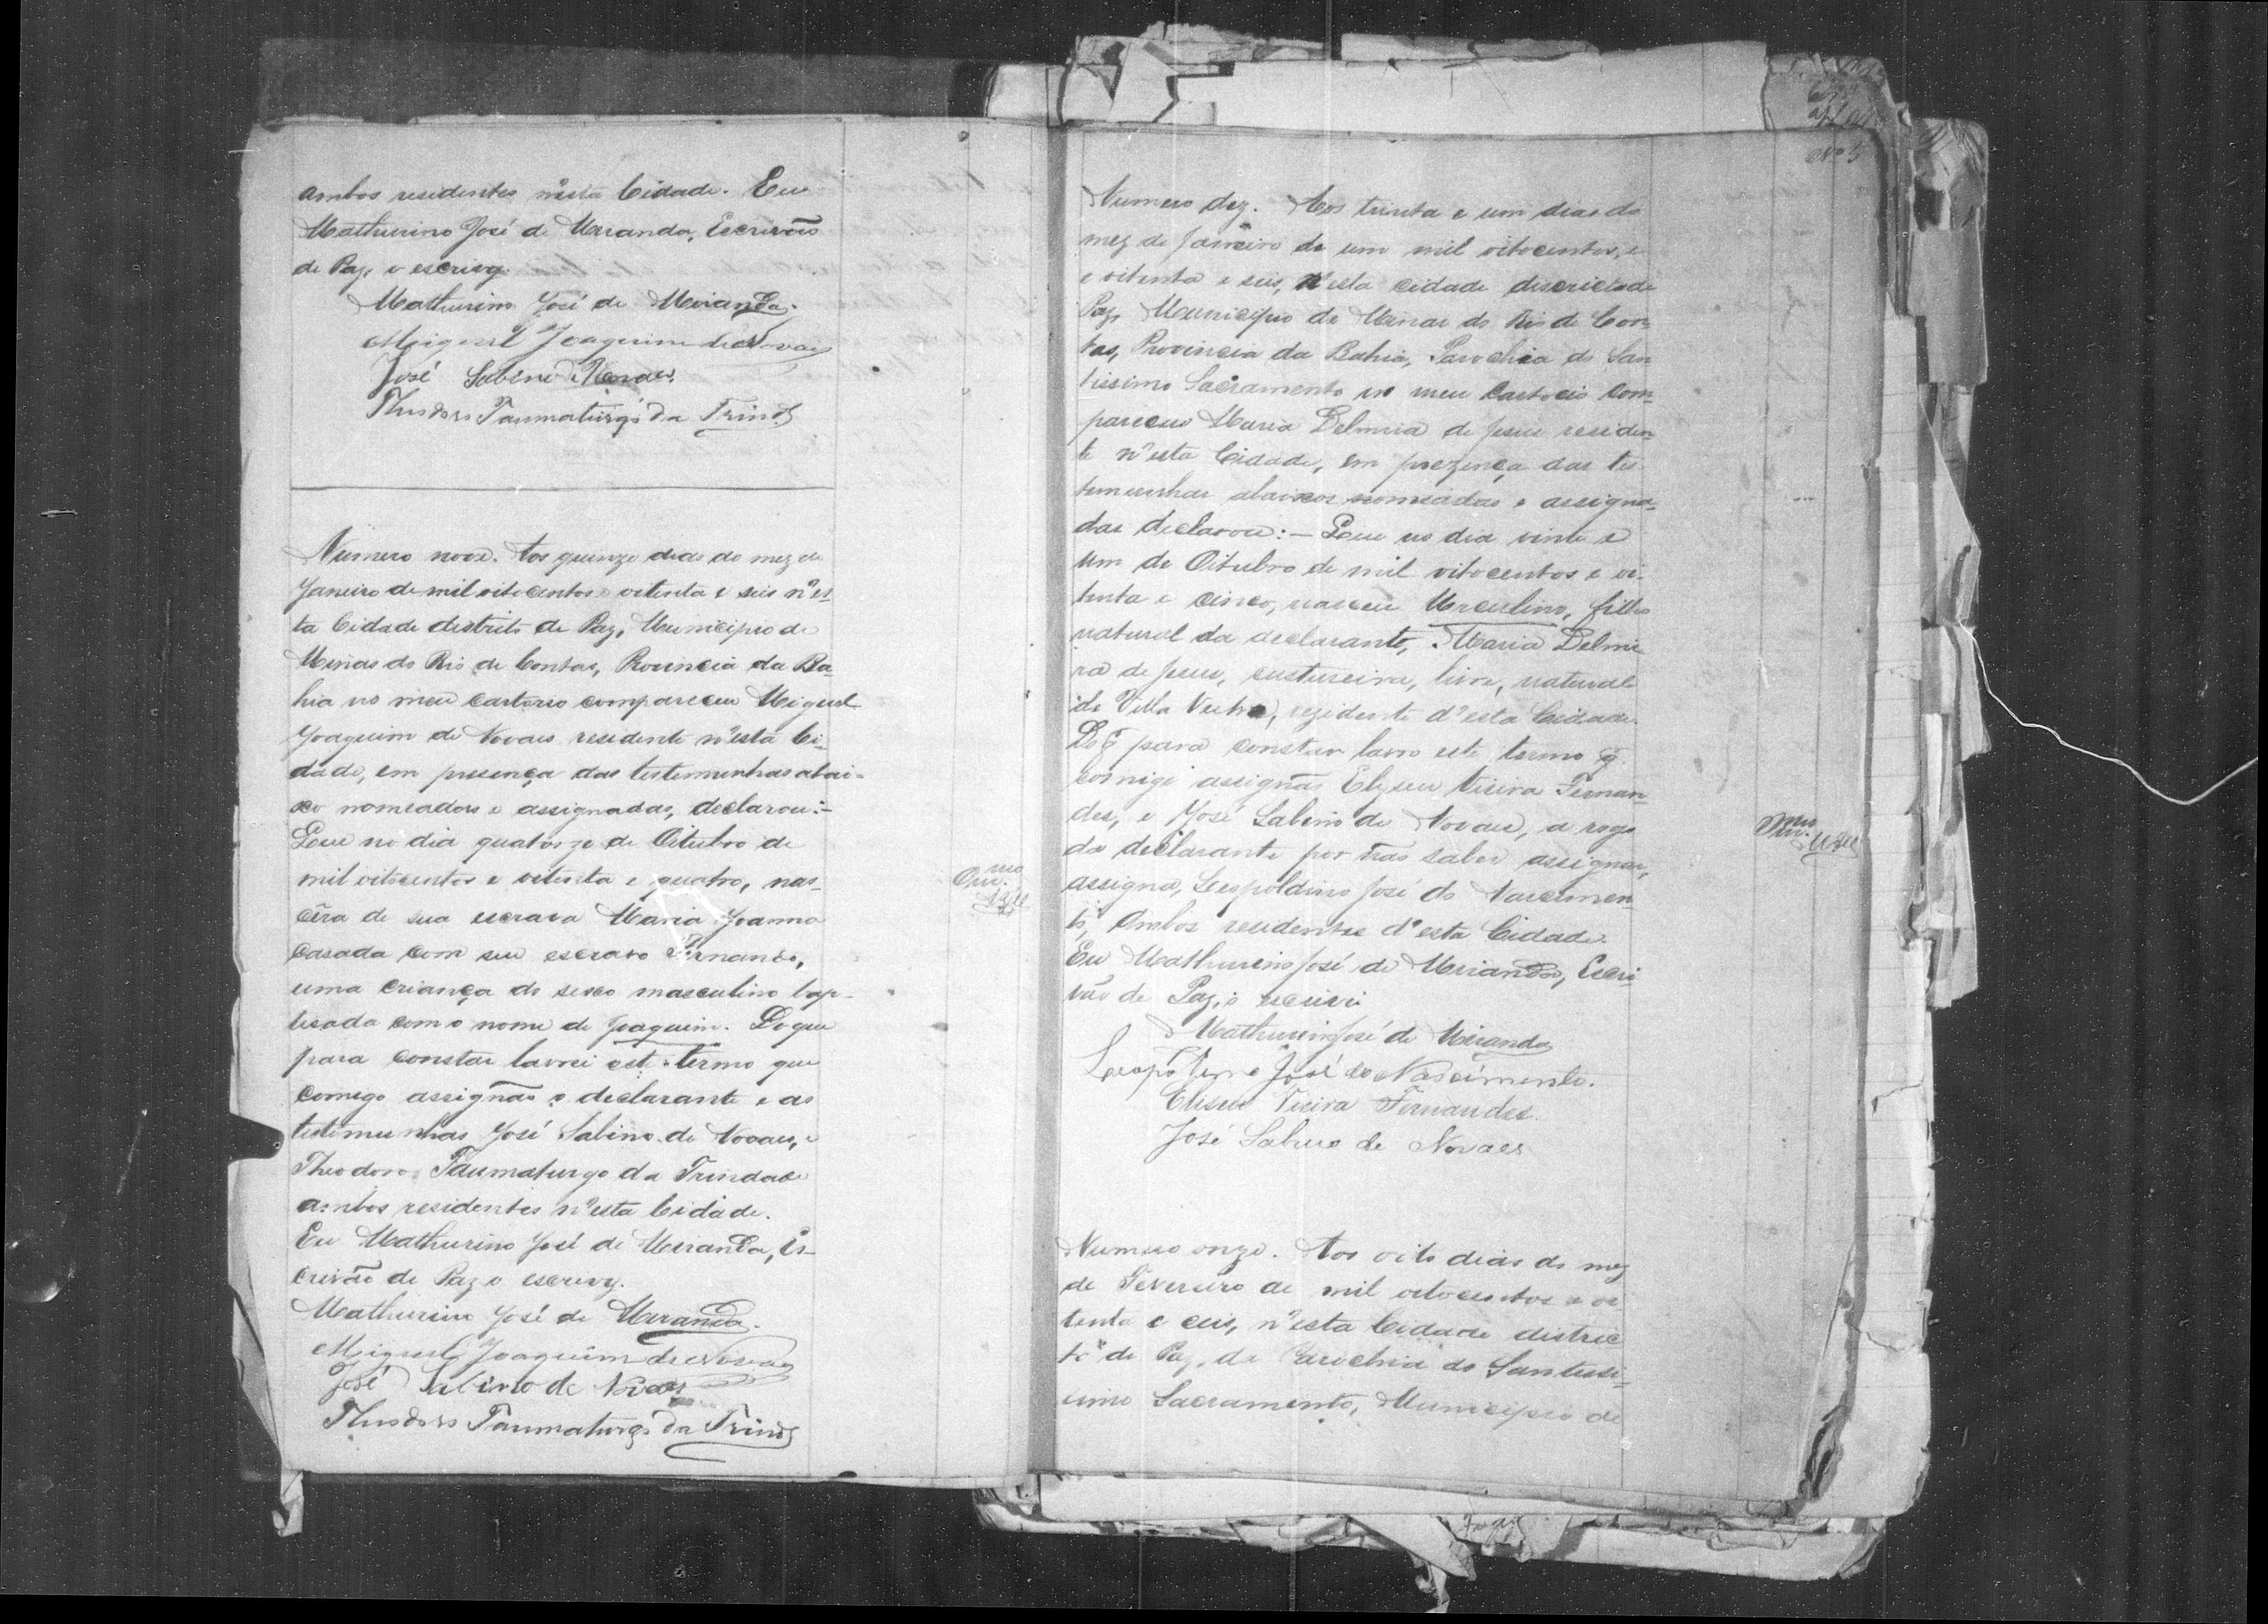 ambos residentes n'esta Cidade. Eu
Mathurino José de Miranda, Escrivão
de Paz, o escrivy.
Mathurino José de Miranda.
Miguel Joaquim de Novaes
José Sabino de Novaes
Theodoro Taumaturgo da Trind.
Numero nove. Aos quinze dias do mez de
Janeiro de mil oitocentos e oitenta e seis n'es-
ta Cidade distrito de Paz, Municipio de
Minas do Rio de Contas, Provincia da Ba-
hia no meu cartorio compareceu Miguel
Joaquim de Novaes residente n'esta Ci-
dade, em presença das testemunhas abai-
xo nomeadas e assignadas, declarou:-
Que no dia quatorze de Oitubro de
mil oitocentos e oitenta e quatro, nas-
cêra de sua escrava Maria Joanna
casada com seu escravo Fernando,
uma criança do sexo masculino bap-
tisada com o nome de Joaquim. Do que
para constar lavrei este termo que
comigo assignão o declarante e as
testemunhas José Sabino de Novaes, e
Theodoro Taumaturgo da Trindade
ambos residentes n'esta Cidade.
Eu Mathurino José de Miranda, Es-
crivão de Paz o escrevy.
Mathurino José de Miranda.
Miguel Joaquim de Novaes
José Sabino de Novaes
Theodoro Taumaturgo da Trind.
Nº 5
Numero dez. Aos trinta e um dias do
mez de Janeiro de um mil oitocentos, e
e oitenta e seis, n'esta cidade discricto de
Paz, Municipio de Minas do Rio de Con-
tas, Provincia da Bahia, Parochia do San
tissimo Sacramento no meu Cartorio com-
pareceu Maria Delmira de Jesus residen-
te n'esta Cidade, em prezença das tes-
temunhas abaixos nomeadas e assigna-
das declarou:- Que no dia vinte e
um de Oitubro de mil oitocentos e oi-
tenta e cinco, nasceu Urculino, filho
natural da declarante, Maria Delmi-
ra de Jesus, custureira, livre, natural
de Villa Velha, rezidente d'esta Cidade.
Do q̃ para constar lavro este termo q̃.
comigo assignão Elyseu Vieira Fernan-
des, e José Sabino de Novaes, a rogo
da declarante por não saber assignar,
assigna, Leopoldino José do Nascimen-
to, Ambos residentes d'esta Cidade.
Eu Mathurino José de Miranda, Escri-
vão de Paz, o escrivi
Mathurino José de Miranda
Leopoldino José do Nascimento.
Eliseu Vieira Fernandes.
José Sabino de Novaes
Numero onze. Aos oito dias do mez
de Fevereiro de mil oitocentos e oi
tenta e seis, n'esta Cidade distric
to de Paz, da Parochia do Santissi-
simo Sacramento, Municipio de